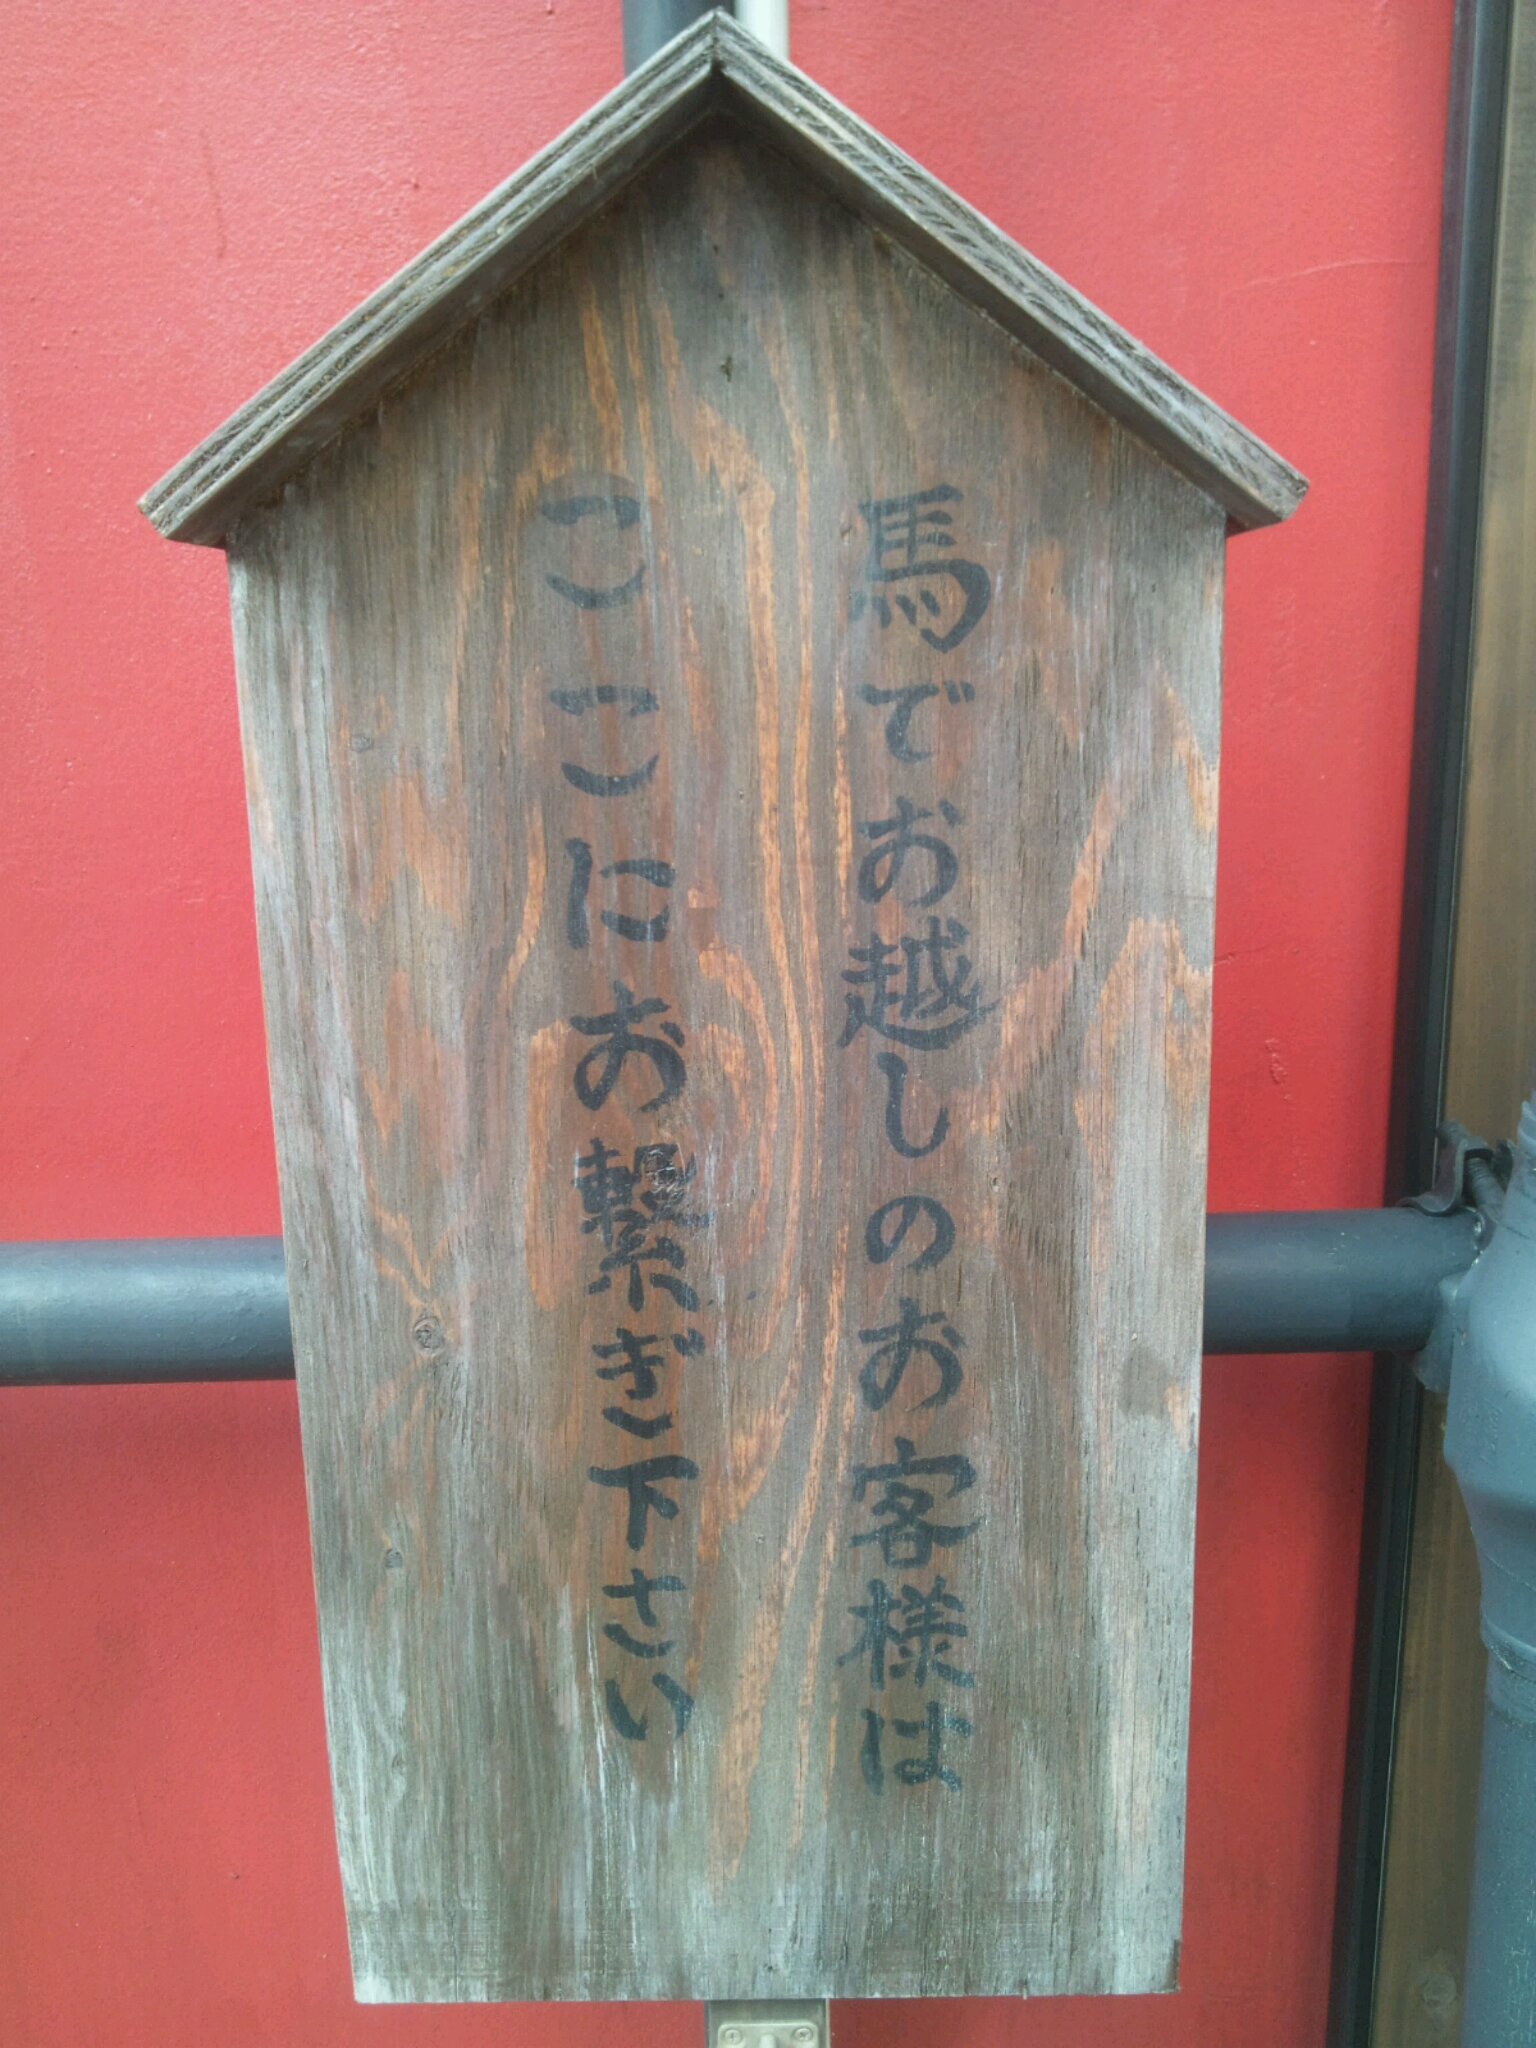 馬でお越しのお客様は
ここにお繋ぎ下さい